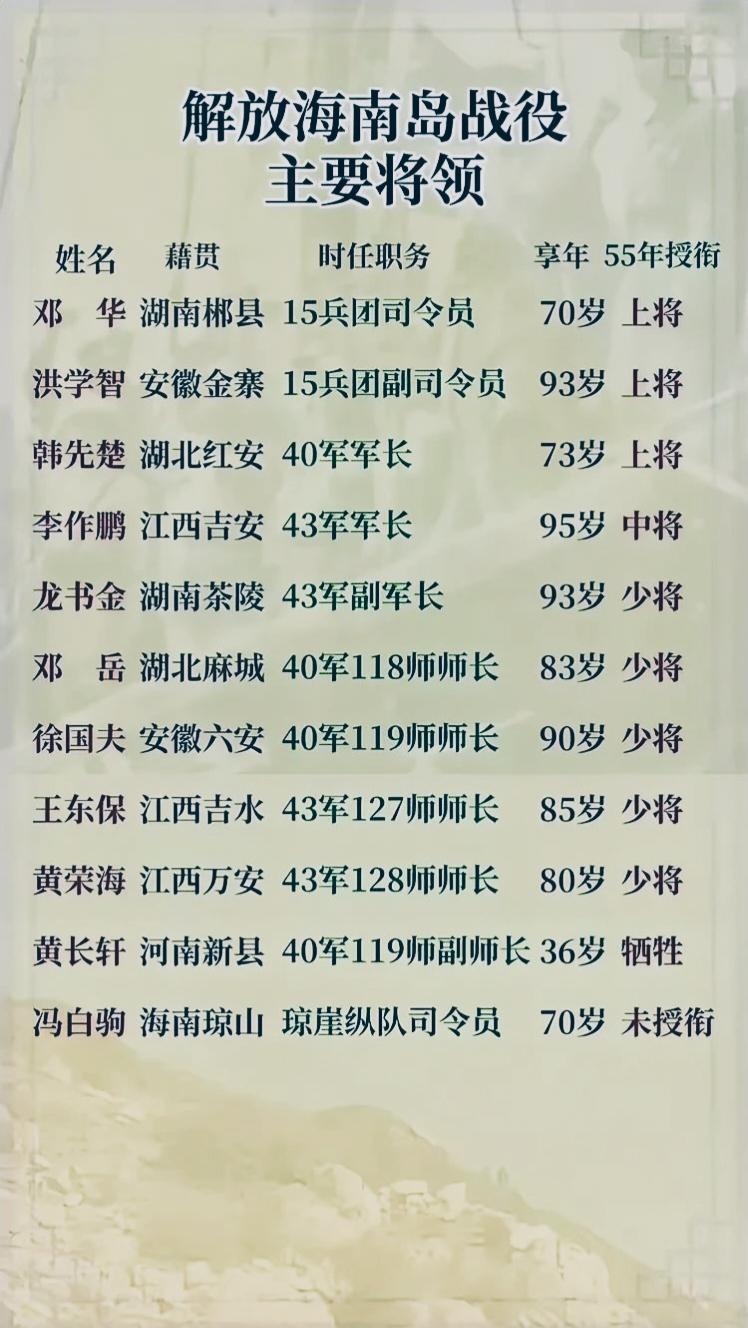 解放海南岛战役
主要将领
姓名 藉贯 时任职务 享年 55年授衔
邓 华 湖南郴县 15兵团司令员 70岁 上将
洪学智 安徽金寨 15兵团副司令员 93岁 上将
韩先楚 湖北红安 40军军长 73岁 上将
李作鹏 江西吉安 43军军长 95岁 中将
龙书金 湖南茶陵 43军副军长 93岁 少将
邓 岳 湖北麻城 40军118师师长 83岁 少将
徐国夫 安徽六安 40军119师师长 90岁 少将
王东保 江西吉水 43军127师师长 85岁 少将
黄荣海 江西万安 43军128师师长 80岁 少将
黄长轩 河南新县 40军119师副师长 36岁 牺牲
冯白驹 海南琼山 琼崖纵队司令员 70岁 未授衔